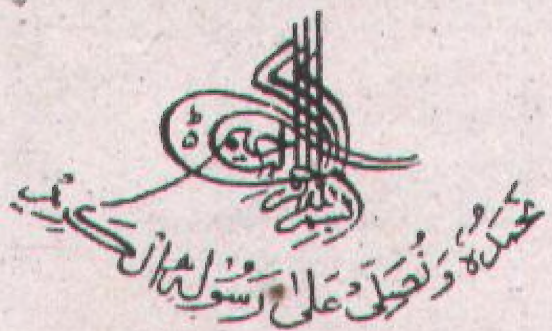 بسم الله الرحمن الرحيم
نحمدہ و نصلی علیٰ رسولہ الکریم